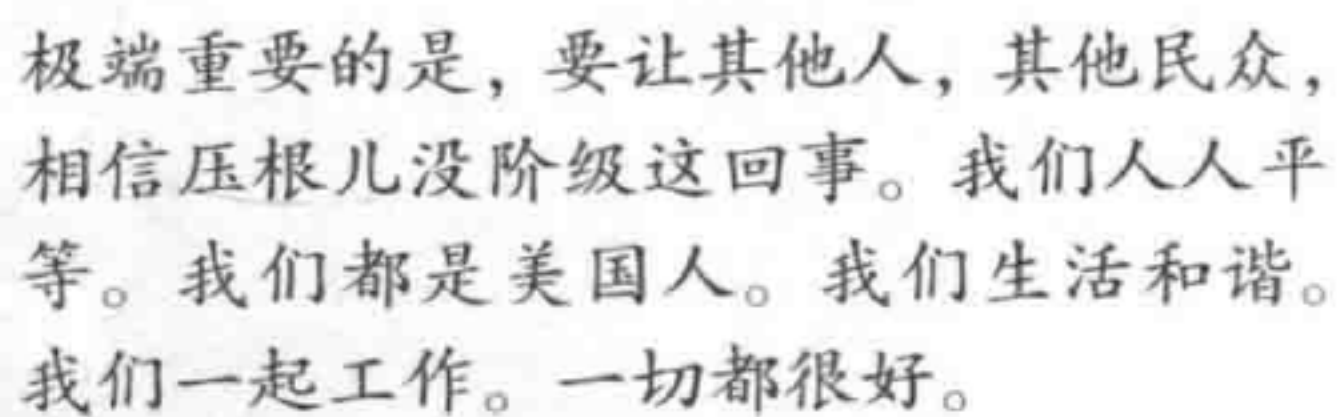 极端重要的是，要让其他人，其他民众，
相信压根儿没阶级这回事。我们人人平
等。我们都是美国人。我们生活和谐。
我们一起工作。一切都很好。